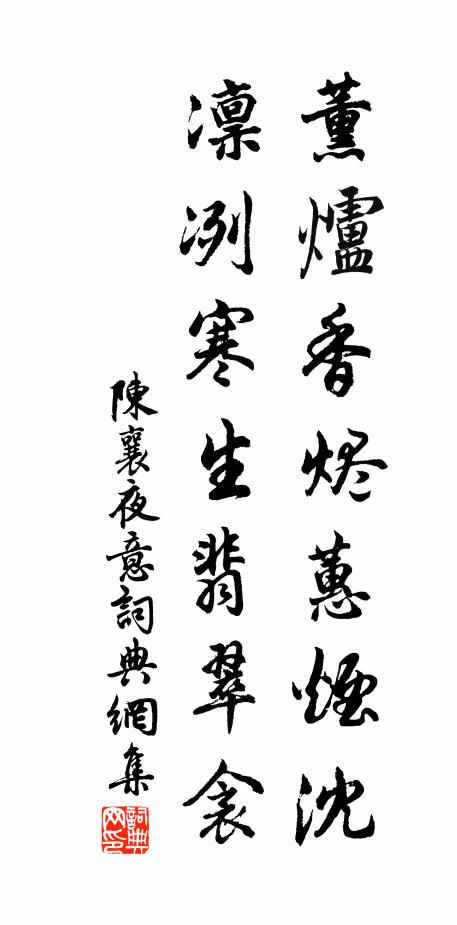 薰爐香烬蕙煙沈
凛冽寒生翡翠衾
陳襄夜意詞典網集
詞典网印